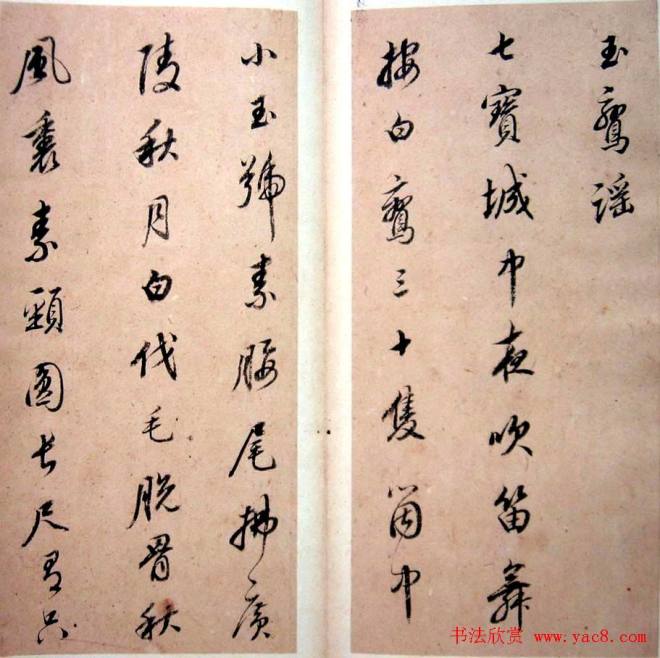 玉鸞謠
七寶城中夜吹笛舞
按白鸞三十隻箇中
小玉號素腰尾拂廣
陵秋月白伐毛脫骨秋
風裏素頸圓長尺
书法欣赏 www.yac8.com